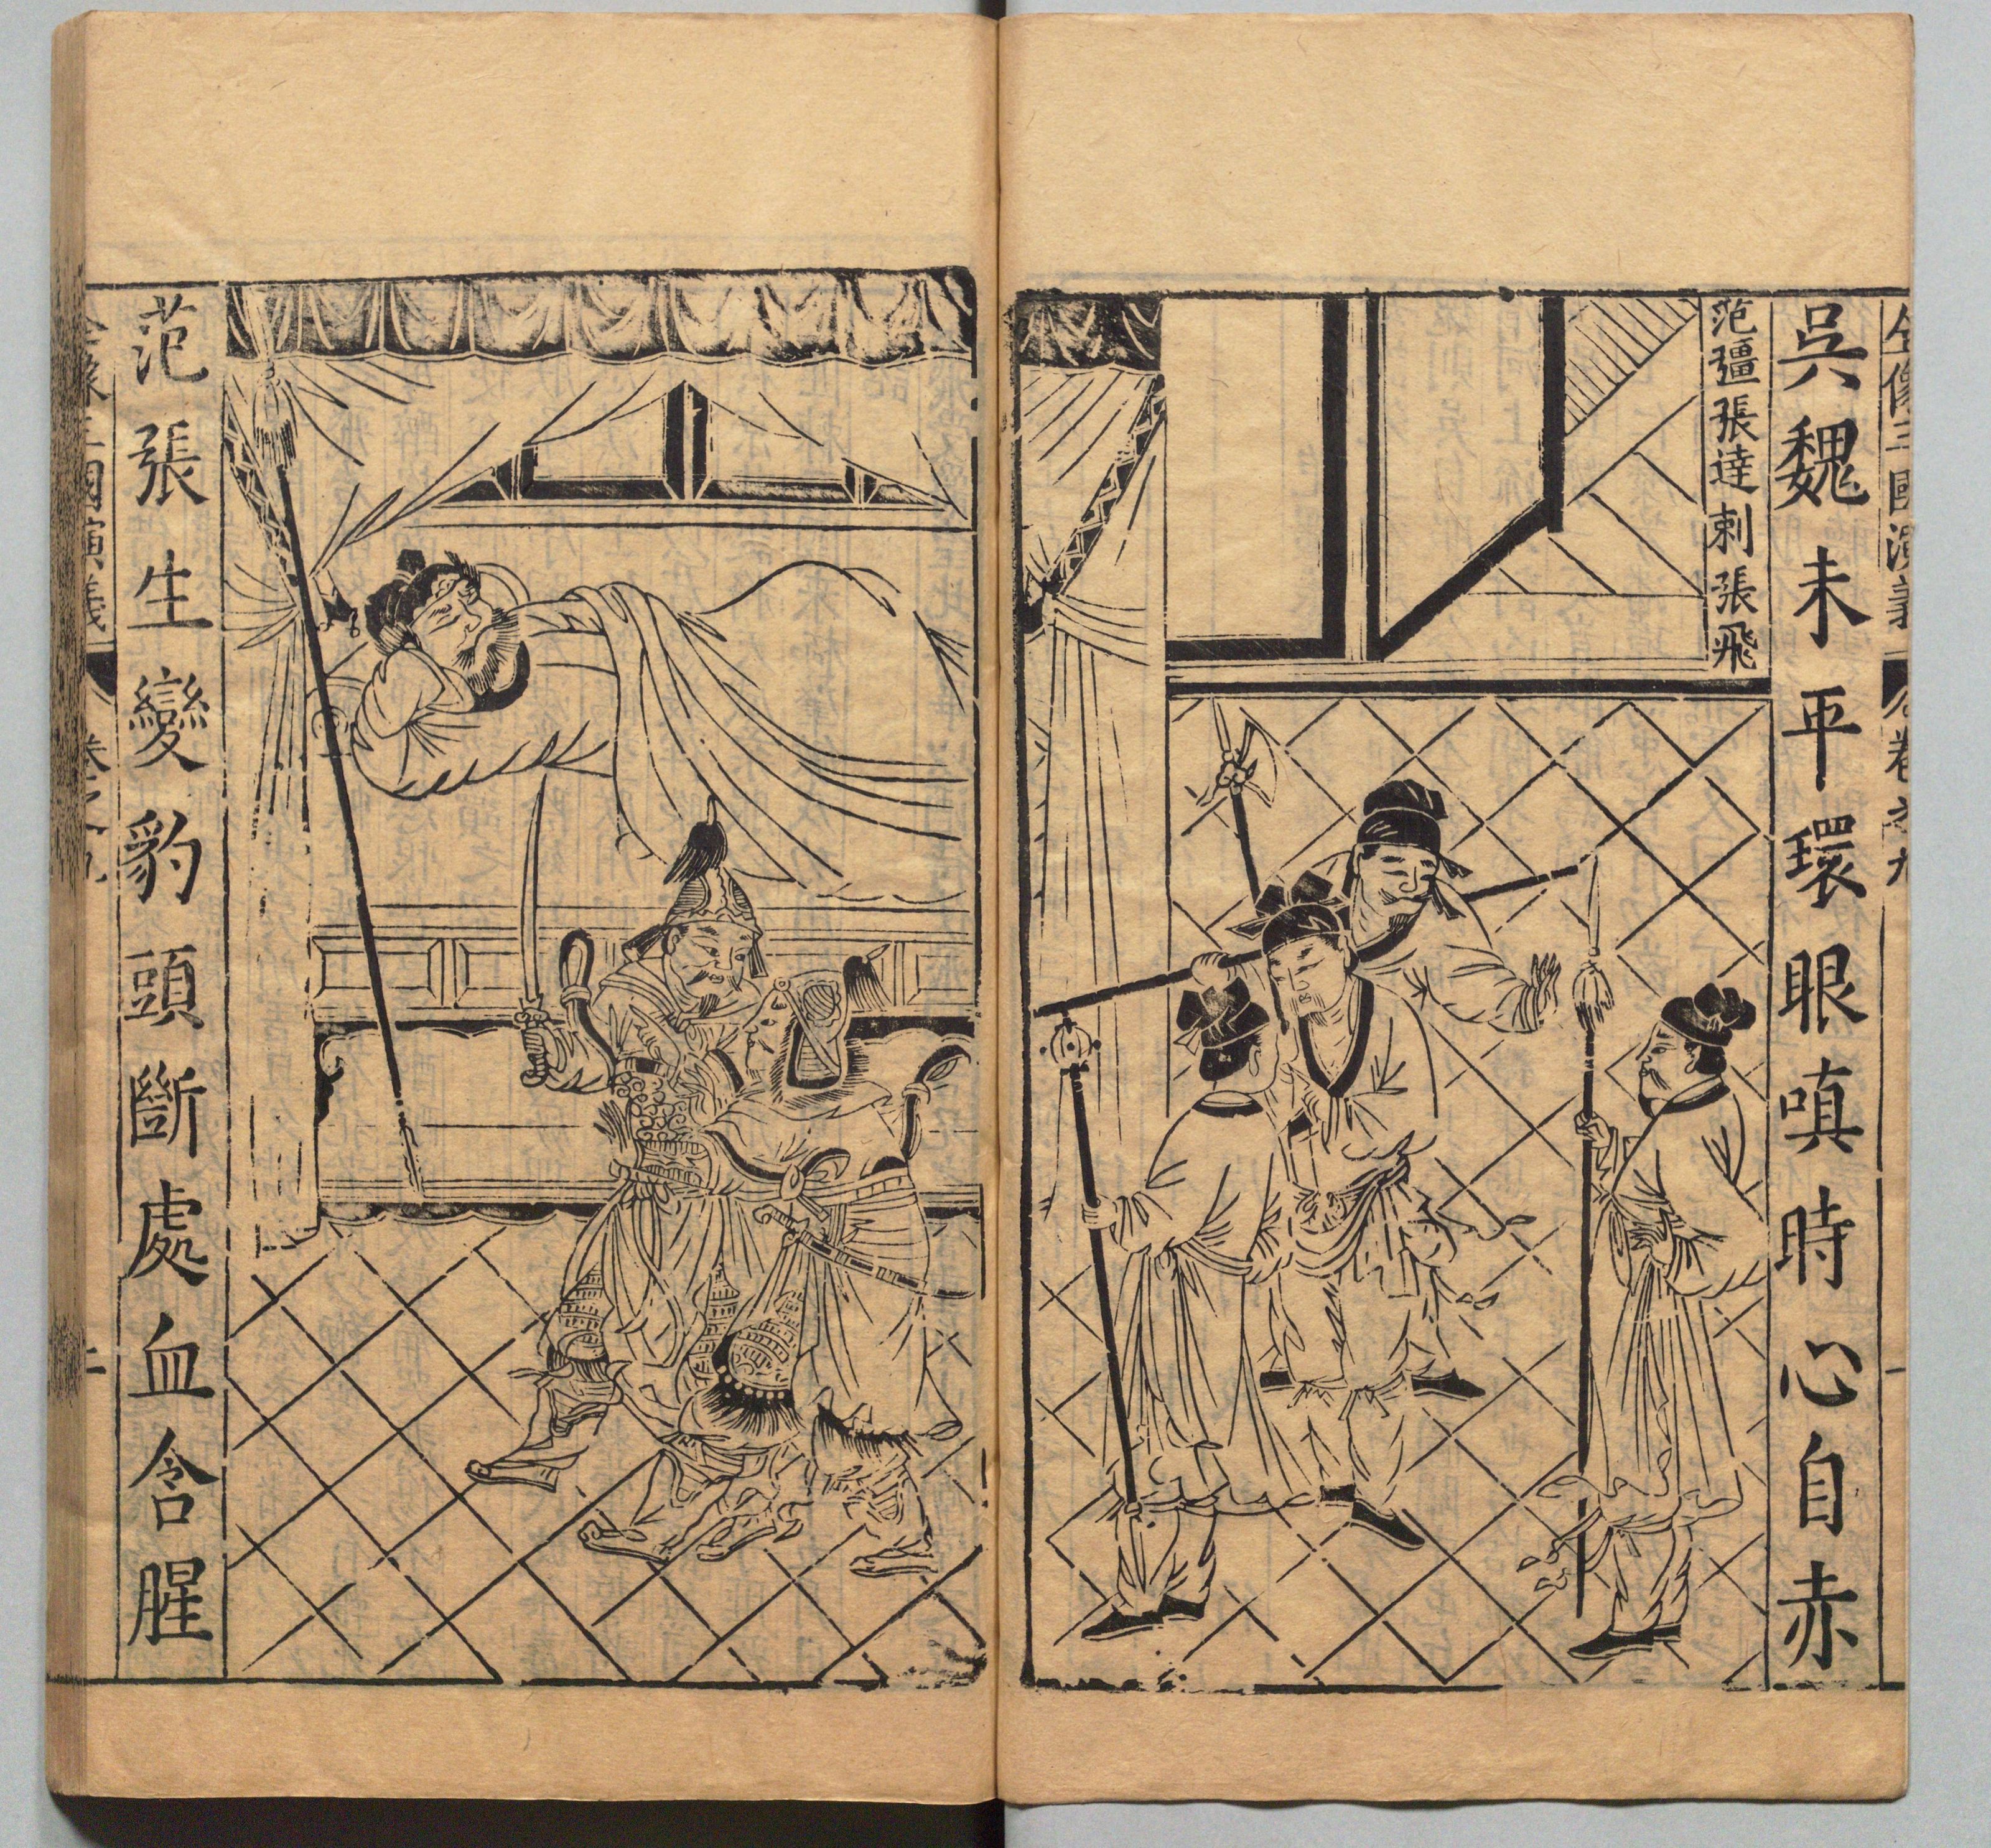 全像三國演義
卷之九
一
吳魏未平環眼嗔時心自赤
范彊張達刺張飛
范張生變豹頭斷處血含腥
三國演義
卷之九
二